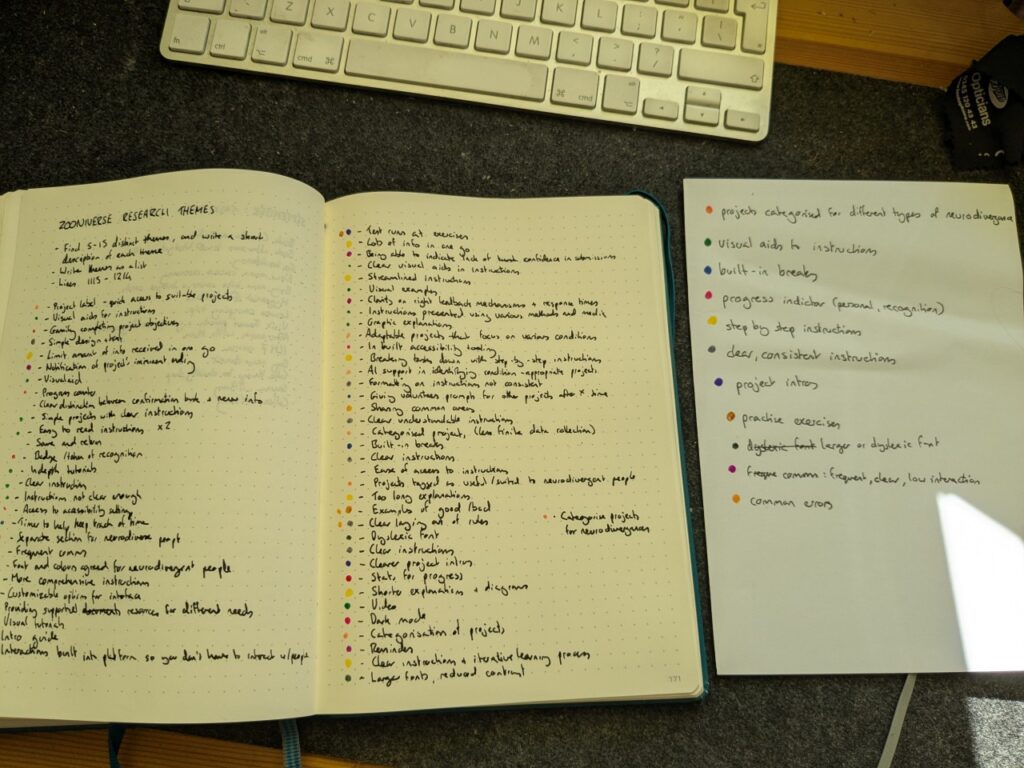 Z
X
C
V
B
N
M
K
L
fn
ctrl
alt
cmd ⌘
cmd ⌘
alt
Opticians
ZOONIVERSE RESEARCH THEMES
- Find 5-15 distinct themes, and write a short
description of each theme
- Write themes as a list
- Lines 1115 - 1214
- Project label - quick access to suitable projects
- Visual aids for instructions
- Gamify completing project objectives
- Simple design
- Limit amount of info received in one go
- Notification of project's imminent ending
- Visual aid
- Progress counter
- Clear distinction between confirmation and new info
- Simple projects with clear instructions
- Easy to read instructions x2
- Save and return
- Badge / token of recognition
- In depth tutorials
- Clear instructions
- Instructions not clear enough
- Access to accessibility settings
- Timer to help keep track of time
- Separate section for neurodiverse people
- Frequent comms
- Font and colours agreed for neurodivergent people
- More comprehensive instructions
- Customizable options for interface
Providing supportive resources for different needs
Visual tutorials
Intro guide
Interactions built into platform so you don't have to interact w/people
- Test runs at exercises
- Lots of info in one go
- Being able to indicate lack of confidence in submissions
- Clear visual aids in instructions
- Streamlined instructions
- Visual examples
- Clarity on right feedback mechanisms + response times
- Instructions presented using various methods and media
- Graphic explanations
- Adaptable projects that focus on various conditions
- In built accessibility tooling
- Breaking tasks down with step-by-step instructions
- AI support in identifying condition-appropriate projects
- Formatting on instructions not consistent
- Giving volunteers prompts for other projects after x time
- Sharing common errors
- Clear understandable instructions
- Categorised project, (less finite data collection)
- Built-in breaks
- Clear instructions
- Ease of access to instructions
- Projects tagged as useful / suited to neurodivergent people
- Too long explanations
- Examples of good / bad
- Clear laying out of rules
- Dyslexic font
- Clear instructions
- Clearer project intros
- Stats for progress
- Shorter explanations + diagrams
- Video
- Dark mode
- Categorisation of projects
- Reminders
- Clear instructions + iterative learning process
- Larger fonts, reduced contrast
- Categorise projects
for neurodivergences
171
projects categorised for different types of neurodivergence
visual aids to instructions
built-in breaks
progress indictor (personal, recognition)
step by step instructions
clear, consistent instructions
project intros
practise exercises
dyslexic font larger or dyslexic font
common: frequent, clear, low interaction
common errors